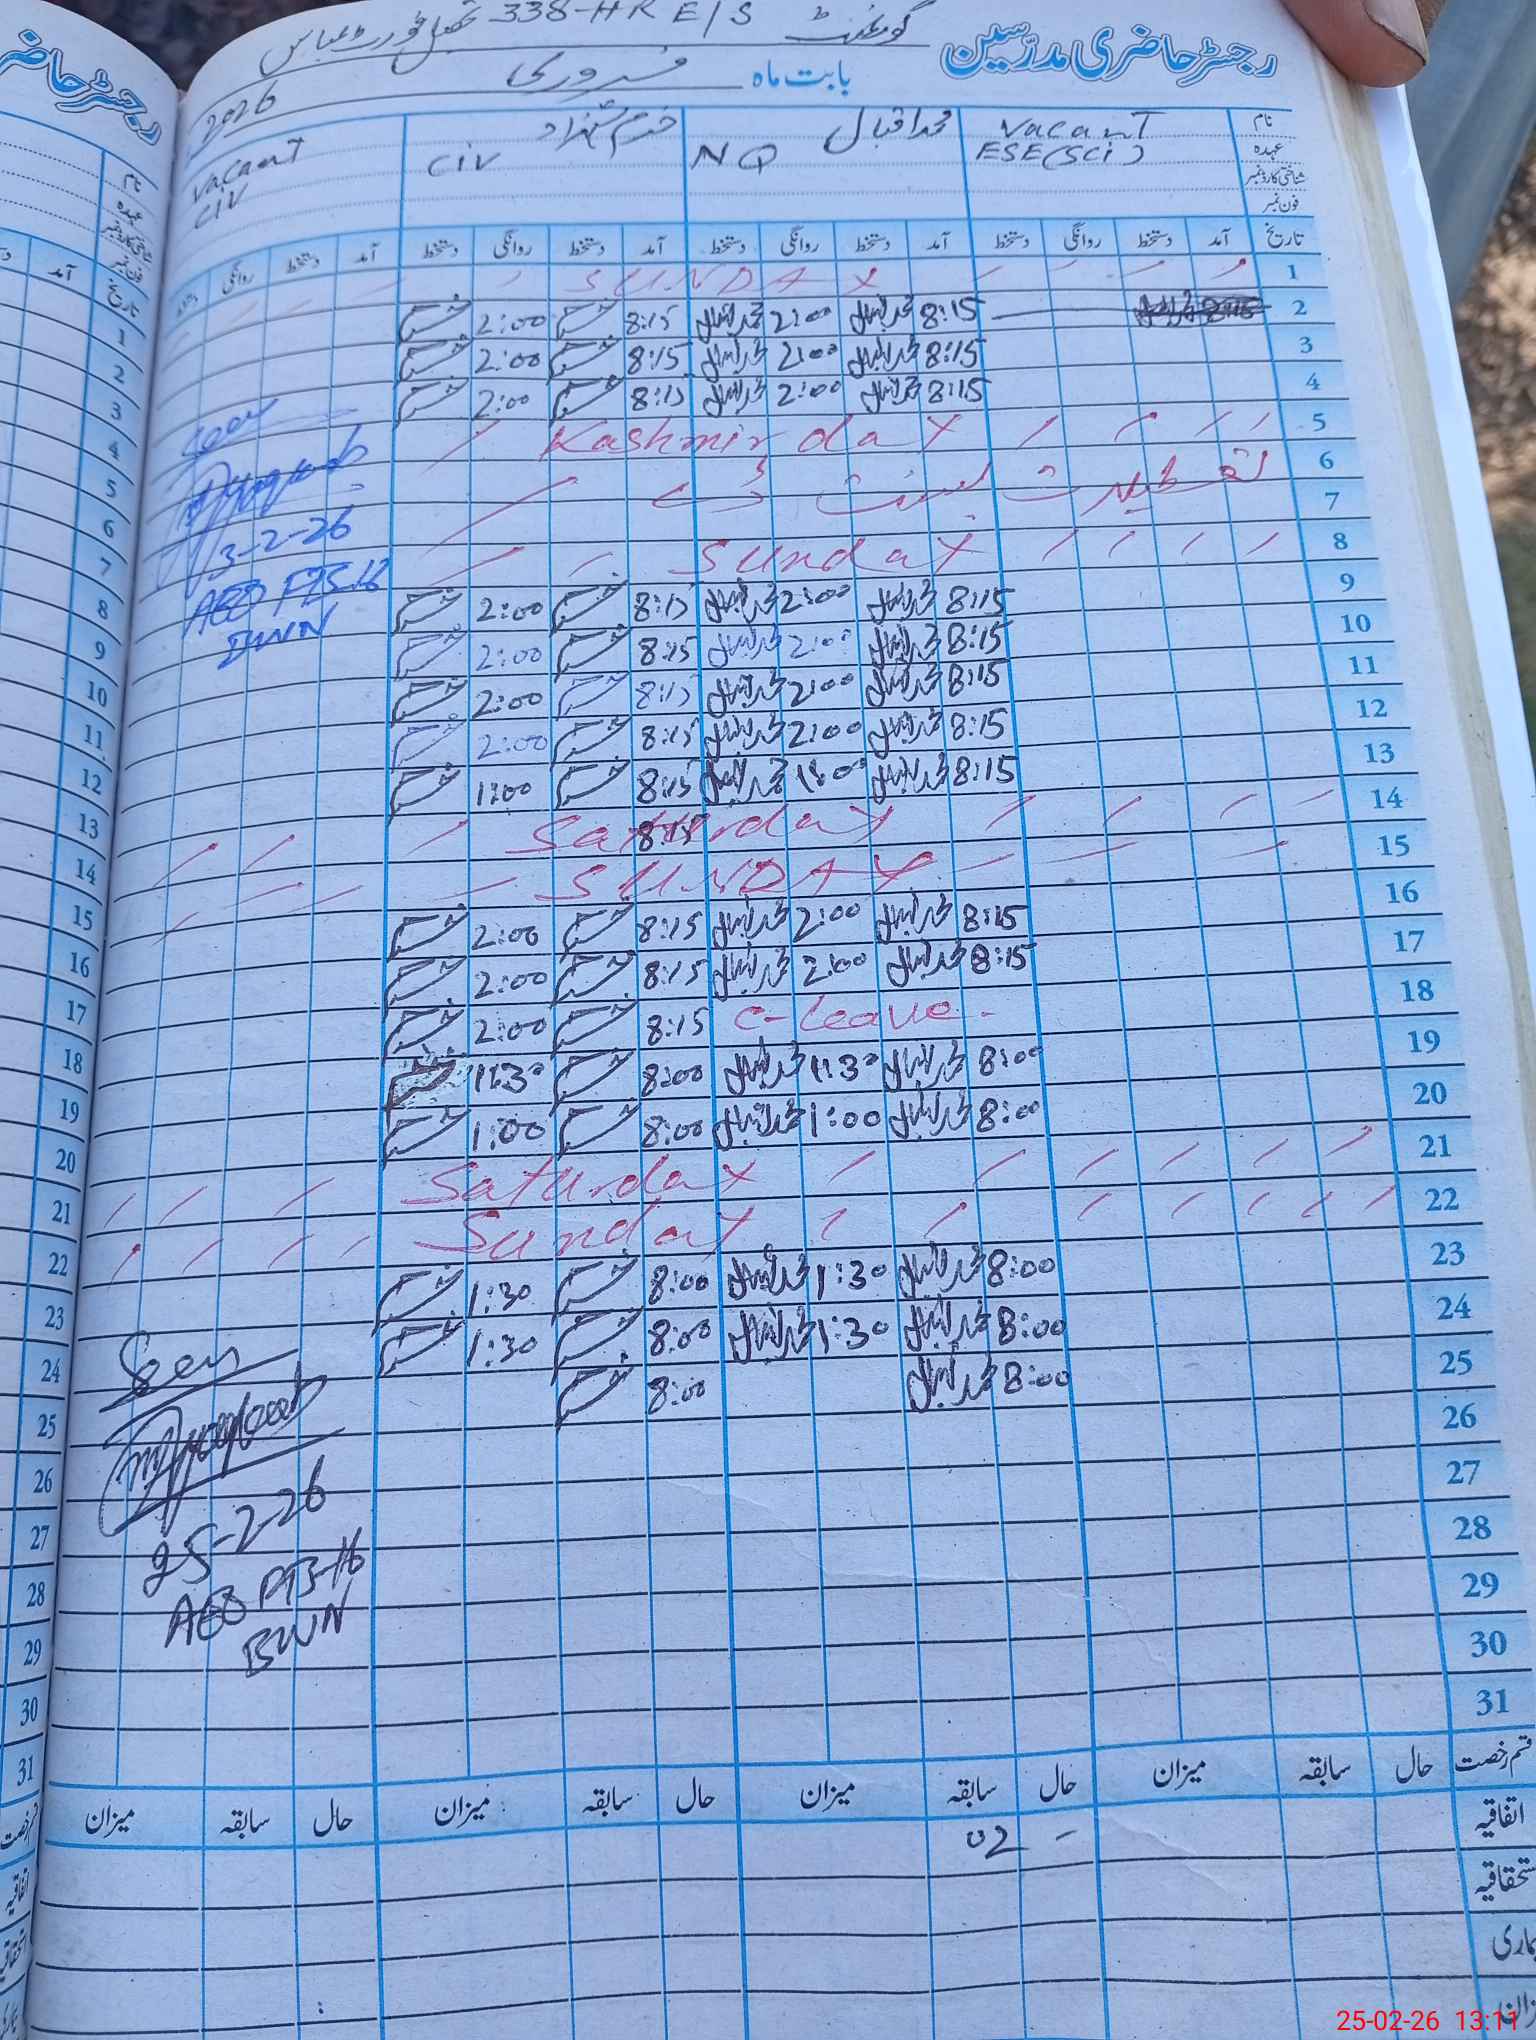 رجسٹر حاضری مدرّسین گورنمنٹ 338-HR E/S تحصیل فورٹ عباس
بابت ماہ فروری 2026
نام Vacant محمد اقبال خرم شہزاد Vacant
عہدہ ESE(SCi) NQ CIV CIV
شناختی کارڈ نمبر
فون نمبر
تاریخ آمد دستخط روانگی دستخط آمد دستخط روانگی دستخط آمد دستخط روانگی دستخط آمد دستخط روانگی
1 SUNDAY
2 8:15 محمد اقبال 8:15 محمد اقبال 2:00 محمد اقبال 8:15 خرم 2:00 خرم
3 8:15 محمد اقبال 2:00 محمد اقبال 8:15 خرم 2:00 خرم
4 8:15 محمد اقبال 2:00 محمد اقبال 8:15 خرم 2:00 خرم
5 Kashmir day
6 تعطیلات بسنت ڈے
7
8 Sunday
9 8:15 محمد اقبال 2:00 محمد اقبال 8:15 خرم 2:00 خرم
10 8:15 محمد اقبال 2:00 محمد اقبال 8:15 خرم 2:00 خرم
11 8:15 محمد اقبال 2:00 محمد اقبال 8:15 خرم 2:00 خرم
12 8:15 محمد اقبال 2:00 محمد اقبال 8:15 خرم 2:00 خرم
13 8:15 محمد اقبال 1:00 محمد اقبال 8:15 خرم 1:00 خرم
14 Saturday 8:15
15 SUNDAY
16 8:15 محمد اقبال 2:00 محمد اقبال 8:15 خرم 2:00 خرم
17 8:15 محمد اقبال 2:00 محمد اقبال 8:15 خرم 2:00 خرم
18 C-leave 8:15 خرم 2:00 خرم
19 8:00 محمد اقبال 11:30 محمد اقبال 8:00 خرم 11:30 خرم
20 8:00 محمد اقبال 1:00 محمد اقبال 8:00 خرم 1:00 خرم
21 Saturday
22 Sunday
23 8:00 محمد اقبال 1:30 محمد اقبال 8:00 خرم 1:30 خرم
24 8:00 محمد اقبال 1:30 محمد اقبال 8:00 خرم 1:30 خرم
25 8:00 محمد اقبال 8:00 خرم
26
27
28
29
30
31
Seen
3-2-26
AEO FTS-16
BWN
Seen
25-2-26
AEO FTS-16
BWN
قسم رخصت حال سابقہ میزان حال سابقہ میزان حال سابقہ میزان حال سابقہ میزان
اتفاقیہ - 02
استحقاقیہ
بیماری
رجسٹر حاضر
نام
عہدہ
شناختی کارڈ نمبر
فون نمبر
تاریخ آمد
1
2
3
4
5
6
7
8
9
10
11
12
13
14
15
16
17
18
19
20
21
22
23
24
25
26
27
28
29
30
31
قسم رخصت
اتفاقیہ
25-02-26 13:11